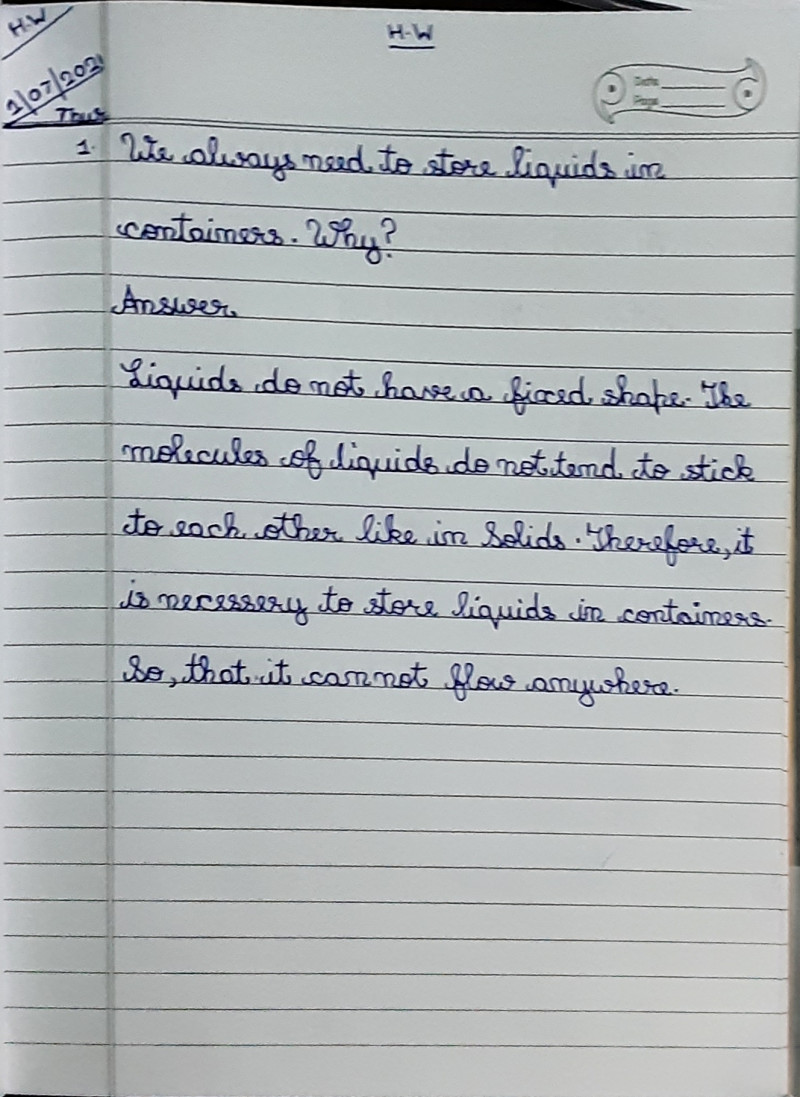 H.W
H-W
1/07/2021
Thus
Date
Page
1. We always need to store liquids in
containers. Why?
Answer.
Liquids do not have a fixed shape. The
molecules of liquids do not tend to stick
to each other like in Solids. Therefore, it
is necessery to store liquids in containers.
So, that it cannot flow anywhere.